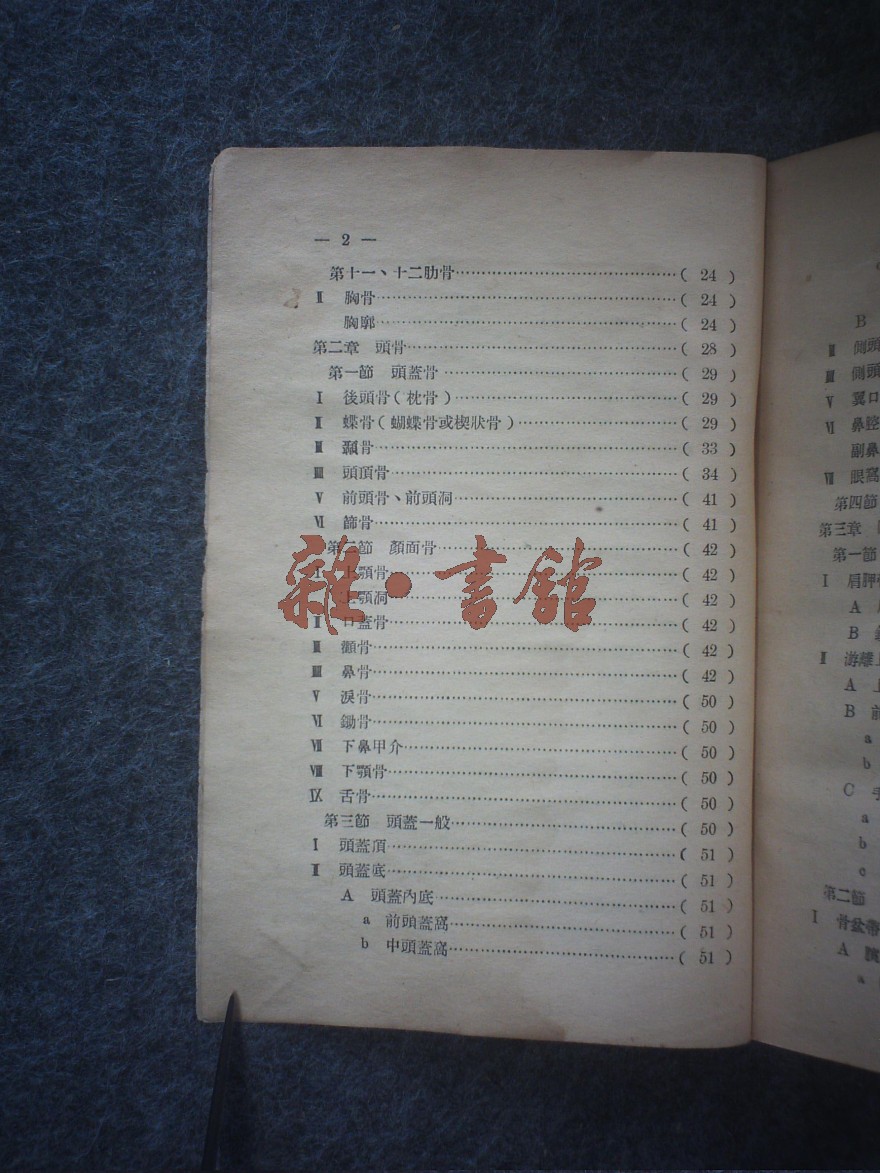 — 2 —
第十一、十二肋骨………( 24 )
Ⅱ 胸骨………( 24 )
胸廓………( 24 )
第二章 頭骨………( 28 )
第一節 頭蓋骨………( 29 )
Ⅰ 後頭骨(枕骨)………( 29 )
Ⅱ 蝶骨(蝴蝶骨或楔狀骨)………( 29 )
Ⅲ 顳骨………( 33 )
Ⅲ 頭頂骨………( 34 )
Ⅴ 前頭骨、前頭洞………( 41 )
Ⅵ 篩骨………( 41 )
第二節 顏面骨………( 42 )
Ⅰ 上顎骨………( 42 )
上顎洞………( 42 )
Ⅱ 口蓋骨………( 42 )
Ⅲ 顴骨………( 42 )
Ⅲ 鼻骨………( 42 )
Ⅴ 淚骨………( 50 )
Ⅵ 鋤骨………( 50 )
Ⅶ 下鼻甲介………( 50 )
Ⅷ 下顎骨………( 50 )
Ⅸ 舌骨………( 50 )
第三節 頭蓋一般………( 50 )
Ⅰ 頭蓋頂………( 51 )
Ⅱ 頭蓋底………( 51 )
A 頭蓋內底………( 51 )
a 前頭蓋窩………( 51 )
b 中頭蓋窩………( 51 )
雜·書館
B
Ⅱ 側頭
Ⅲ 側頭
Ⅴ 翼口
Ⅵ 鼻腔
副鼻
Ⅶ 眼窩
第四節
第三章
第一節
Ⅰ 肩胛
A
B
Ⅱ 游離
A 上
B 前
a
b
C 手
a
b
c
第二節
Ⅰ 骨盆帶
A
a